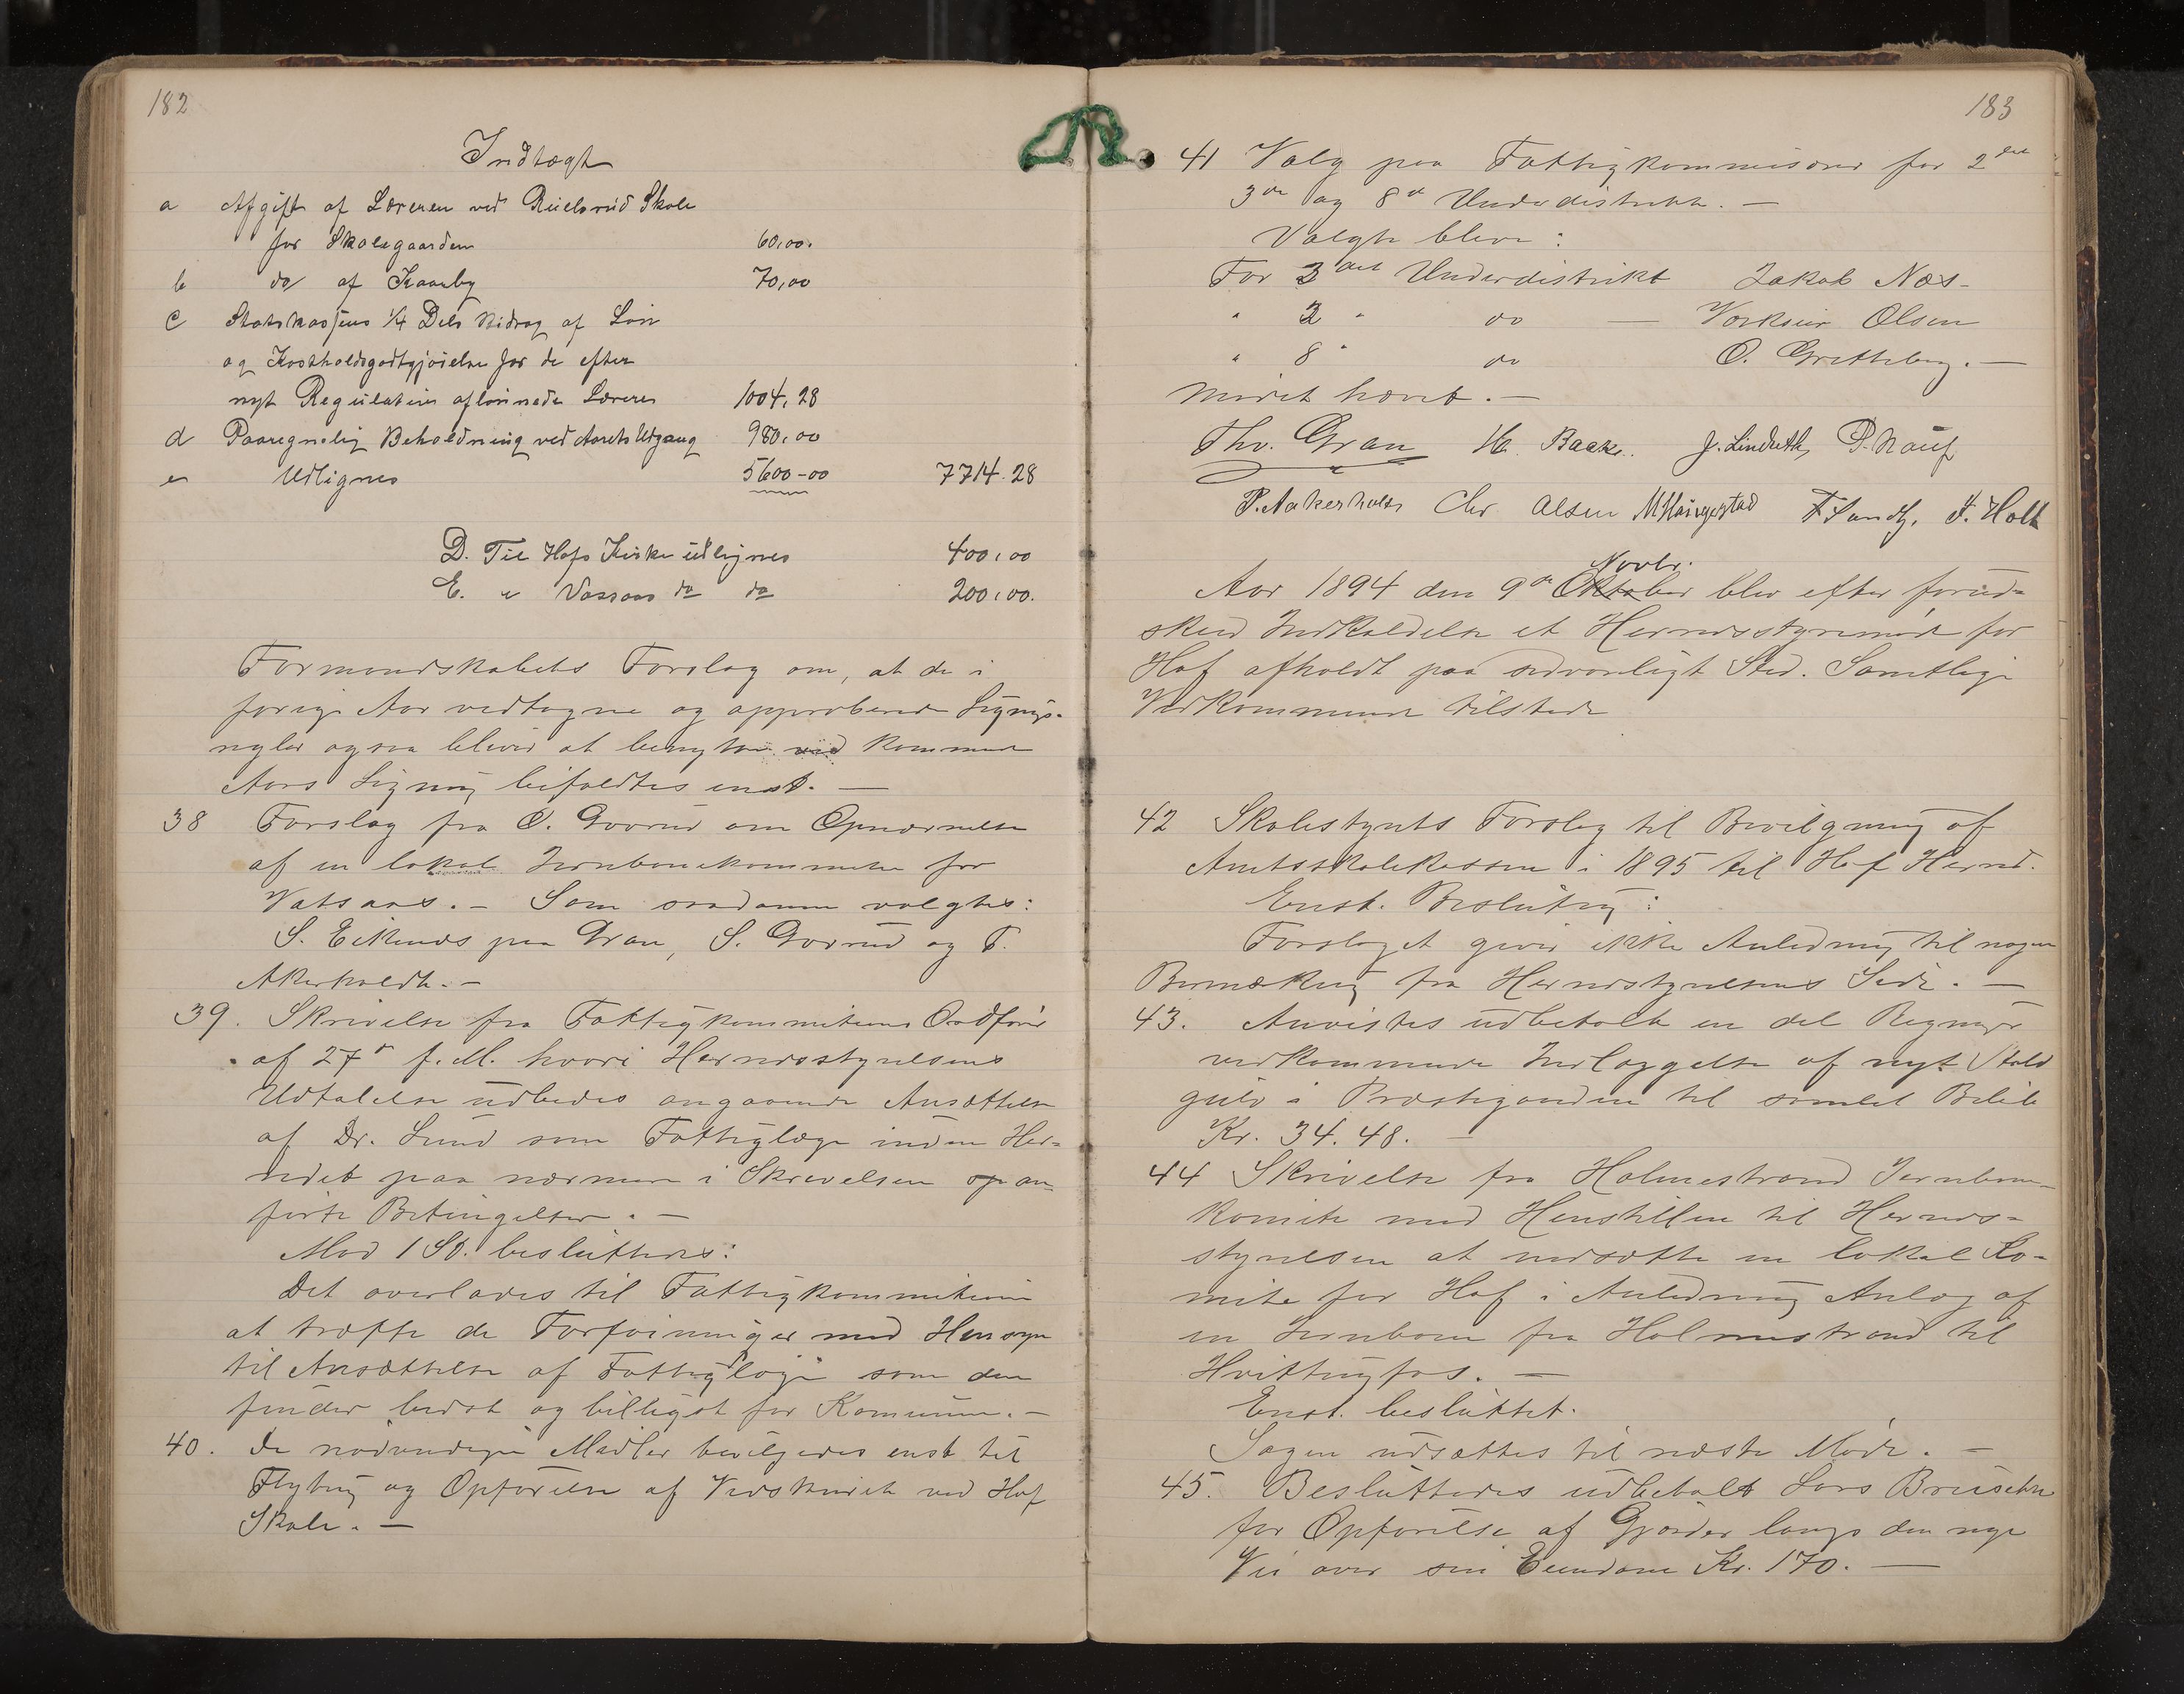 182
Indtægt
a Afgift af Læreren ved Ruelsrud Skole
for Skolegaarden 60,00.
b do af Kaarby 70,00
c Statskassens 1/4 Dels Bidrag af Løn
og Kostholdsgodtgjørelse for de efter
nyt Regulativ aflønnede Lærere 1004,28
d Paaregnelig Beholdning ved Aarets Udgang 980,00
e Udlignes 5600-00 7714.28
D. Til Hofs Kirke udlignes 400,00
E. " Vassaas do do 200,00.
Formandskabets Forslag om, at de i
forige Aar vedtagne og approberede Lignings-
regler ogsaa bliver at benytte ved kommende
Aars Ligning bifaldtes enst. —
38 Forslag fra O. Gorrud om Opnævnelse
af en lokal Jernbanekommite for
Vatsaas. — Som saadanne valgtes:
S. Eikenæs paa Gran, S. Gorrud og P.
Akerholdt. —
39. Skrivelse fra Fattigkommitiens Ordfører
af 27de f. M. hvori Herredsstyrelsens
Udtalelse udbedes angaaende Ansættelse
af Dr. Lund som Fattiglæge inden Her-
redet paa nærmere i Skrivelsen op an-
førte Betingelser. —
Mod 1 St. besluttedes:
Det overlades til Fattigkommitien
at træffe de Forføininger med Hensyn
til Ansættelse af Fattiglæge som den
finder bedst og billigst for Kommunen. —
40. De nødvendige Midler bevilgedes enst til
Flytning og Opførelse af Vedskuret ved Hof
Skole. —
183
41 Valg paa Fattigkommisærer for 2det
3de og 8de Underdistrikt. —
Valgte bleve:
For 3det Underdistrikt Jakob Næs —
" 2 " do — Olsen
" 8 " do O. Gretteberg. —
Mødet hævet. —
Thv. Gran H. Baak. J. Lindseth P. Kauf
P. Aakerholdt Chr Olsen M Haugestad F Sundby. F. Holt
Novbr.
Aar 1894 den 9de Oktober blev efter forud-
skeed Indkaldelse et Herredsstyremøde for
Hof afholdt paa sedvanligt Sted. Samtlige
Vedkommende tilstede
42 Skolestyrets Forslag til Bevilgning af
Amtsskolekassen i 1895 til Hof Herred.
Enst. Beslutning:
Forslaget giver ikke Anledning til nogen
Bemærkning fra Herredsstyrelsens Side. —
43. Anvistes udbetalt en del Regninger
vedkommende Indlæggelse af nyt Stald
gulv i Præstegaarden til samlet Beløb
Kr. 34.48. —
44 Skrivelse fra Holmestrand Jernbane-
komite med Henstillen til Herreds-
styrelsen at nedsætte en lokal Ko-
mite for Hof i Anledning Anlæg af
en Jernbane fra Holmestrand til
Hvittingfos. —
Enst. besluttet.
Sagen udsættes til næste Møde. —
45. Besluttedes udbetalt Lars Bruserud
for Opførelse af Gjærder langs den nye
Vei over sin Eiendom Kr. 170. —